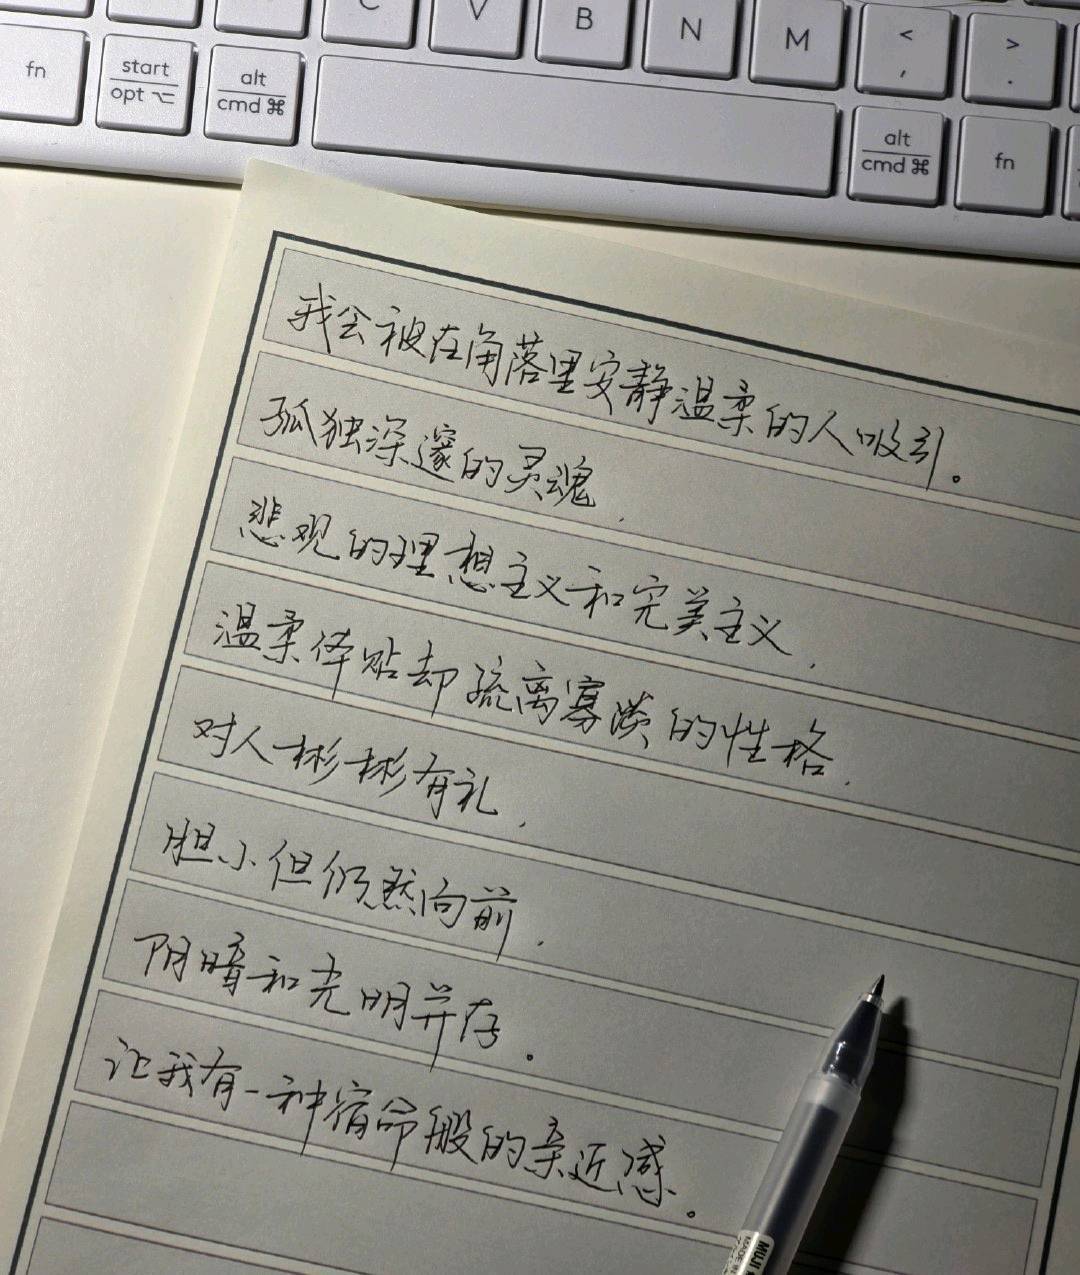 C V B N M < , > .
fn start opt ⌥ alt cmd ⌘ alt cmd ⌘ fn
我会被在角落里安静温柔的人吸引。
孤独深邃的灵魂,
悲观的理想主义和完美主义,
温柔体贴却疏离寡淡的性格,
对人彬彬有礼,
胆小但仍然向前,
阴暗和光明并存。
让我有一种宿命般的亲近感。
MUJI